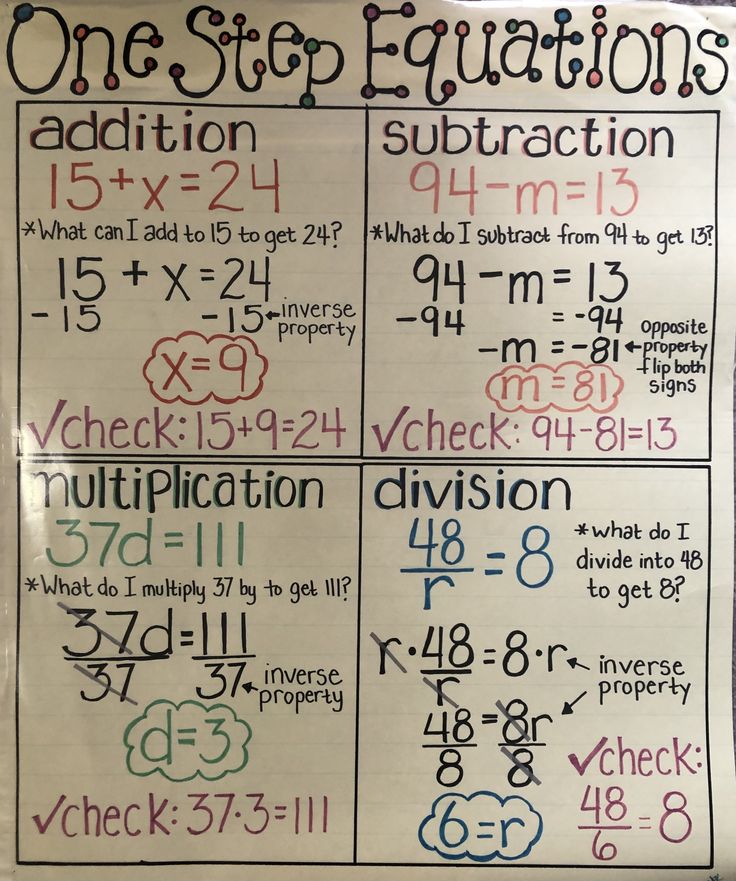 One Step Equations
addition
15+x=24
*What can I add to 15 to get 24?
15 + x = 24
-15 -15 ←inverse
property
x=9
✓check: 15+9=24
subtraction
94-m=13
*What do I subtract from 94 to get 13?
94 - m = 13
-94 = -94
-m = -81
opposite
←property
flip both
signs
m = 81
✓check: 94-81=13
multiplication
37d=111
*What do I multiply 37 by to get 111?
37d=111
37 37
←inverse
property
d=3
✓check: 37·3=111
division
48
r
=8
*what do I
divide into 48
to get 8?
r·48=8·r
r
←inverse
property
48=8r
8 8
6=r
✓check:
48
6
=8